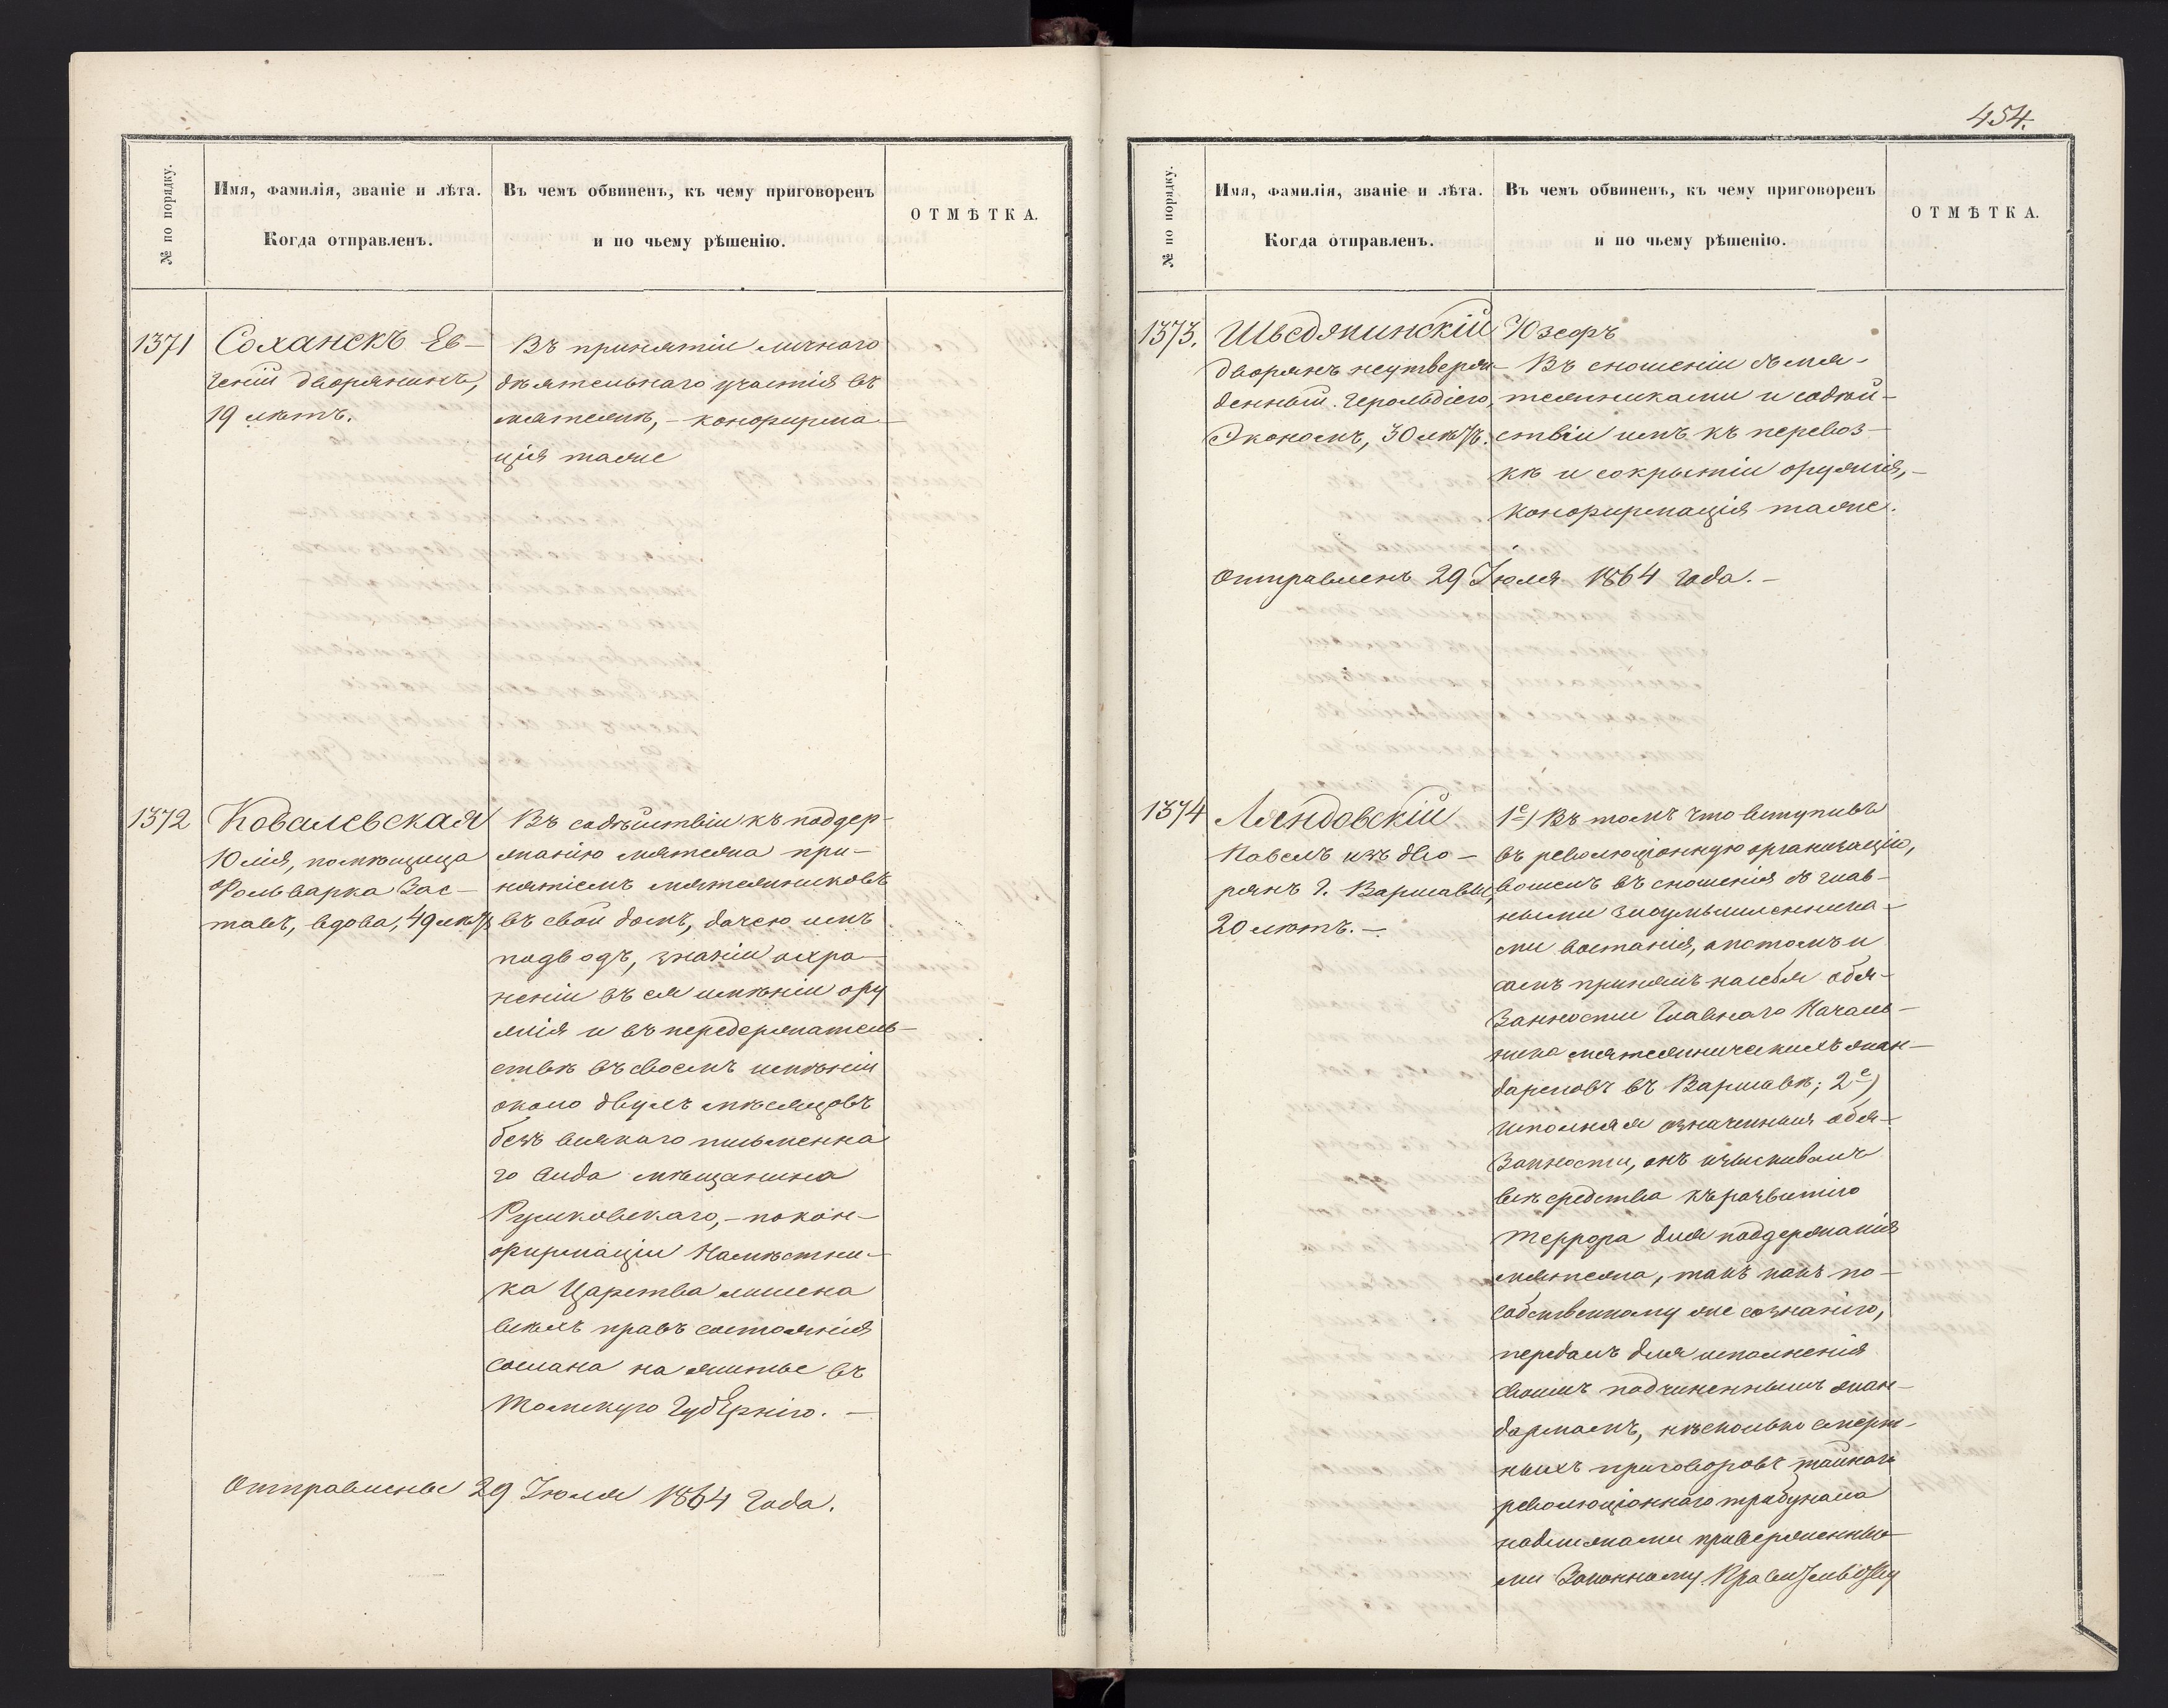 № по порядку.
Имя, фамилія, званіе и лѣта.
Когда отправленъ.
Въ чемъ обвиненъ, къ чему приговоренъ
и по чьему рѣшенію.
ОТМѢТКА.
1371
Соханекъ Ев-
геній дворянинъ,
19 лѣтъ.
Въ принятіи личнаго
дѣятельнаго участія въ
мятежѣ, - конфирма-
ція таже
1372
Ковалевская
Юлія, помѣщица
фольварка Зас-
тавъ, вдова, 49 лѣтъ
Въ содѣйствіи къ поддер-
жанію мятежа при-
нятіемъ мятежниковъ
въ свой домъ, дачею имъ
подводъ, знаніи о хра-
неніи въ ея имѣніи ору
жія и въ передержатель-
ствѣ въ своемъ имѣніи
около двухъ мѣсяцовъ
безъ всякаго письменна
го вида мѣщанина
Рушковскаго, - по кон-
фирмаціи Намѣстни-
ка Царства лишена
всѣхъ правъ состоянія
сослана на житье въ
Томскую Губернію. -
Отправлены 29 Іюля 1864 года.
454.
№ по порядку.
Имя, фамилія, званіе и лѣта.
Когда отправленъ.
Въ чемъ обвиненъ, къ чему приговоренъ
и по чьему рѣшенію.
ОТМѢТКА.
1373.
Шведяпинскій Юзефъ
дворянъ неутверж-
денный Герольдіею,
Экономъ, 30 лѣтъ.
Въ сношеніи съ мя-
тежниками и содѣй-
ствіи имъ къ перевоз-
кѣ и сокрытіи оружія, -
конфирмація таже.
Отправленъ 29 Іюля 1864 года. -
1374
Ляндовскій
Павелъ изъ дво-
рянъ г. Варшавы,
20 лѣтъ. -
1е) Въ томъ что вступивъ
въ революціонную организацію,
вошелъ въ сношенія съ глав-
ными злоумышленника-
ми востанія, а потомъ и
самъ принялъ на себя обя-
занности Главнаго Началь-
ника мятежническихъ жан-
дармовъ въ Варшавѣ; 2е)
исполняя означенныя обя-
занности, онъ изыскивалъ
всѣ средства къ развитію
террора для поддержанія
мятежа, такъ какъ по
собственному же сознанію,
передалъ для исполненія
своимъ подчиненнымъ жан-
дармамъ, нѣсколько смерт-
ныхъ приговоровъ тайнаго
революціоннаго трибунала
надъ лицами приверженны-
ми Законному Правительству